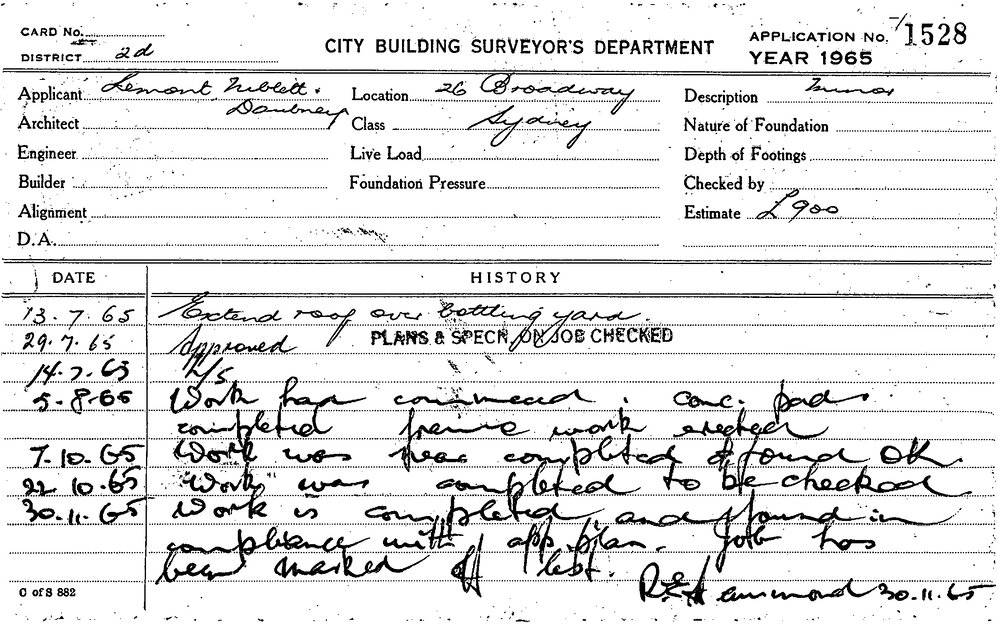 CARD No.
DISTRICT 2d
CITY BUILDING SURVEYOR'S DEPARTMENT
APPLICATION No. 1528
YEAR 1965
Applicant Lemont, Niblett &
Daubney
Location 26 Broadway
Description Minor
Architect
Class Sydney
Nature of Foundation
Engineer
Live Load
Depth of Footings
Builder
Foundation Pressure
Checked by
Alignment
Estimate £900
D.A.
DATE HISTORY
13.7.65 Extend roof over bottling yard.
29.7.65 Approved PLANS & SPECN ON JOB CHECKED
N/S
5-8-65 Work had commenced. conc. pads
completed frame work erected
7.10.65 Work was near completed & found OK.
22 10.65 "Work" was completed to be checked
30.11.65 Work is completed and found in
compliance with app. plan. Job has
been marked off list.
R E Hammond 30.11.65
C of S 882